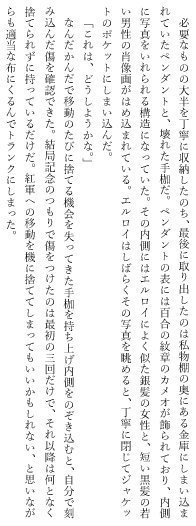 必要なものの大半を丁寧に収納したのち、最後に取り出したのは私物棚の奥にある金庫にしまい込ま
れていたペンダントと、壊れた手枷だ。ペンダントの表には百合の紋章のカメオが飾られており、内側
に写真をいれられる構造になっていた。その内側にはエルロイによく似た銀髪の女性と、短い黒髪の若
い男性の肖像画がはめ込まれている。エルロイはしばらくその写真を眺めると、丁寧に閉じてジャケッ
トのポケットにしまい込んだ。
「これは、どうしようかな。」
　なんだかんだで移動のたびに捨てる機会を失ってきた手枷を持ち上げ内側をのぞき込むと、自分で刻
み込んだ傷を確認できた。結局記念のつもりで傷をつけたのは最初の三回だけで、それ以降は何となく
捨てられずに持っているだけだ。紅軍への移動を機に捨ててしまってもいいかもしれない、と思いなが
らも適当な布にくるんでトランクにしまった。